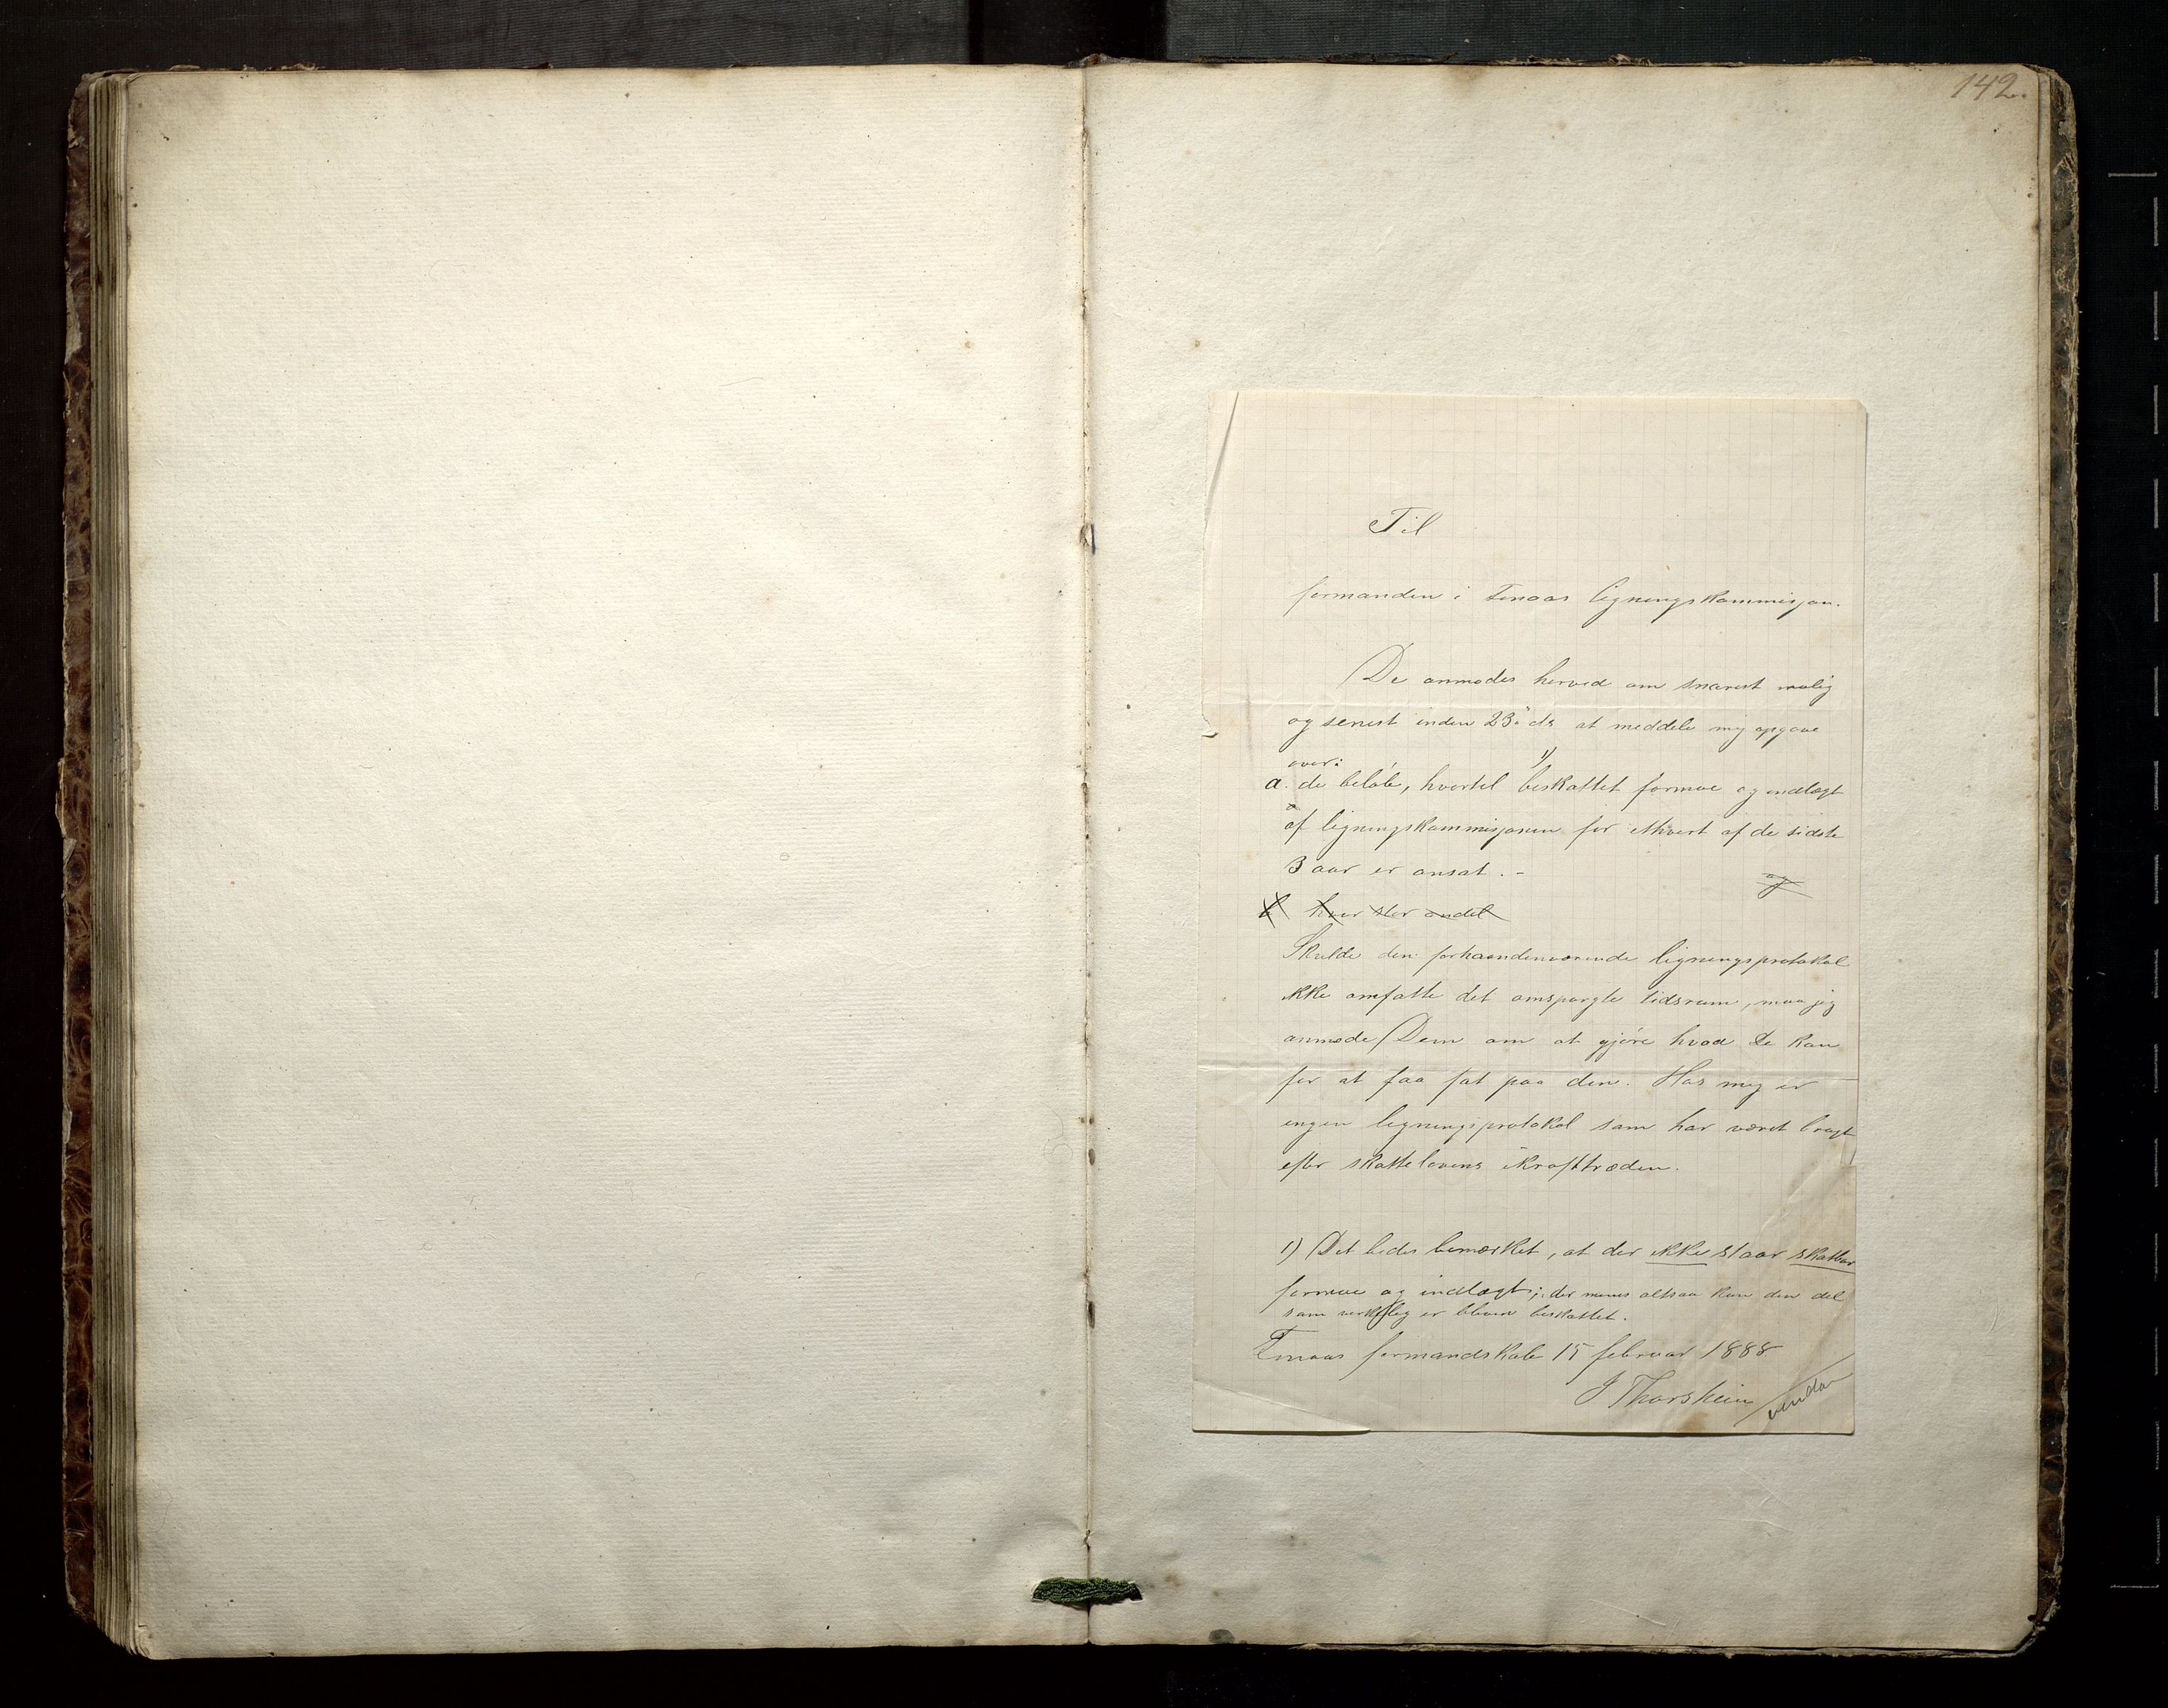 142.
Til
formanden i Finaas ligningskommisjon.
De anmodes herved om snarest mulig
og senest inden 23de ds at meddele mig opgave
over:
a. de beløb, hvortil 1) beskattet formue og indtægt
af ligningskommisjonen for ethvert af de sidste
3 aar er ansat. -
og
b hvor stor andel
Skulde den forhaandenværende ligningsprotokol
ikke omfatte det omspurgte tidsrum, maa jeg
anmode Dem om at gjøre hvad De kan
for at faa fat paa den. Hos mig er
ingen ligningsprotokol som har været brugt
efter skattelovens ikrafttræden.
1) Det bedes bemærket, at der ikke staar skatbar
formue og indtægt; der menes altsaa kun den del
som virkelig er bleven beskattet.
Finaas formandskab 15 februar 1888
J Thorsheim